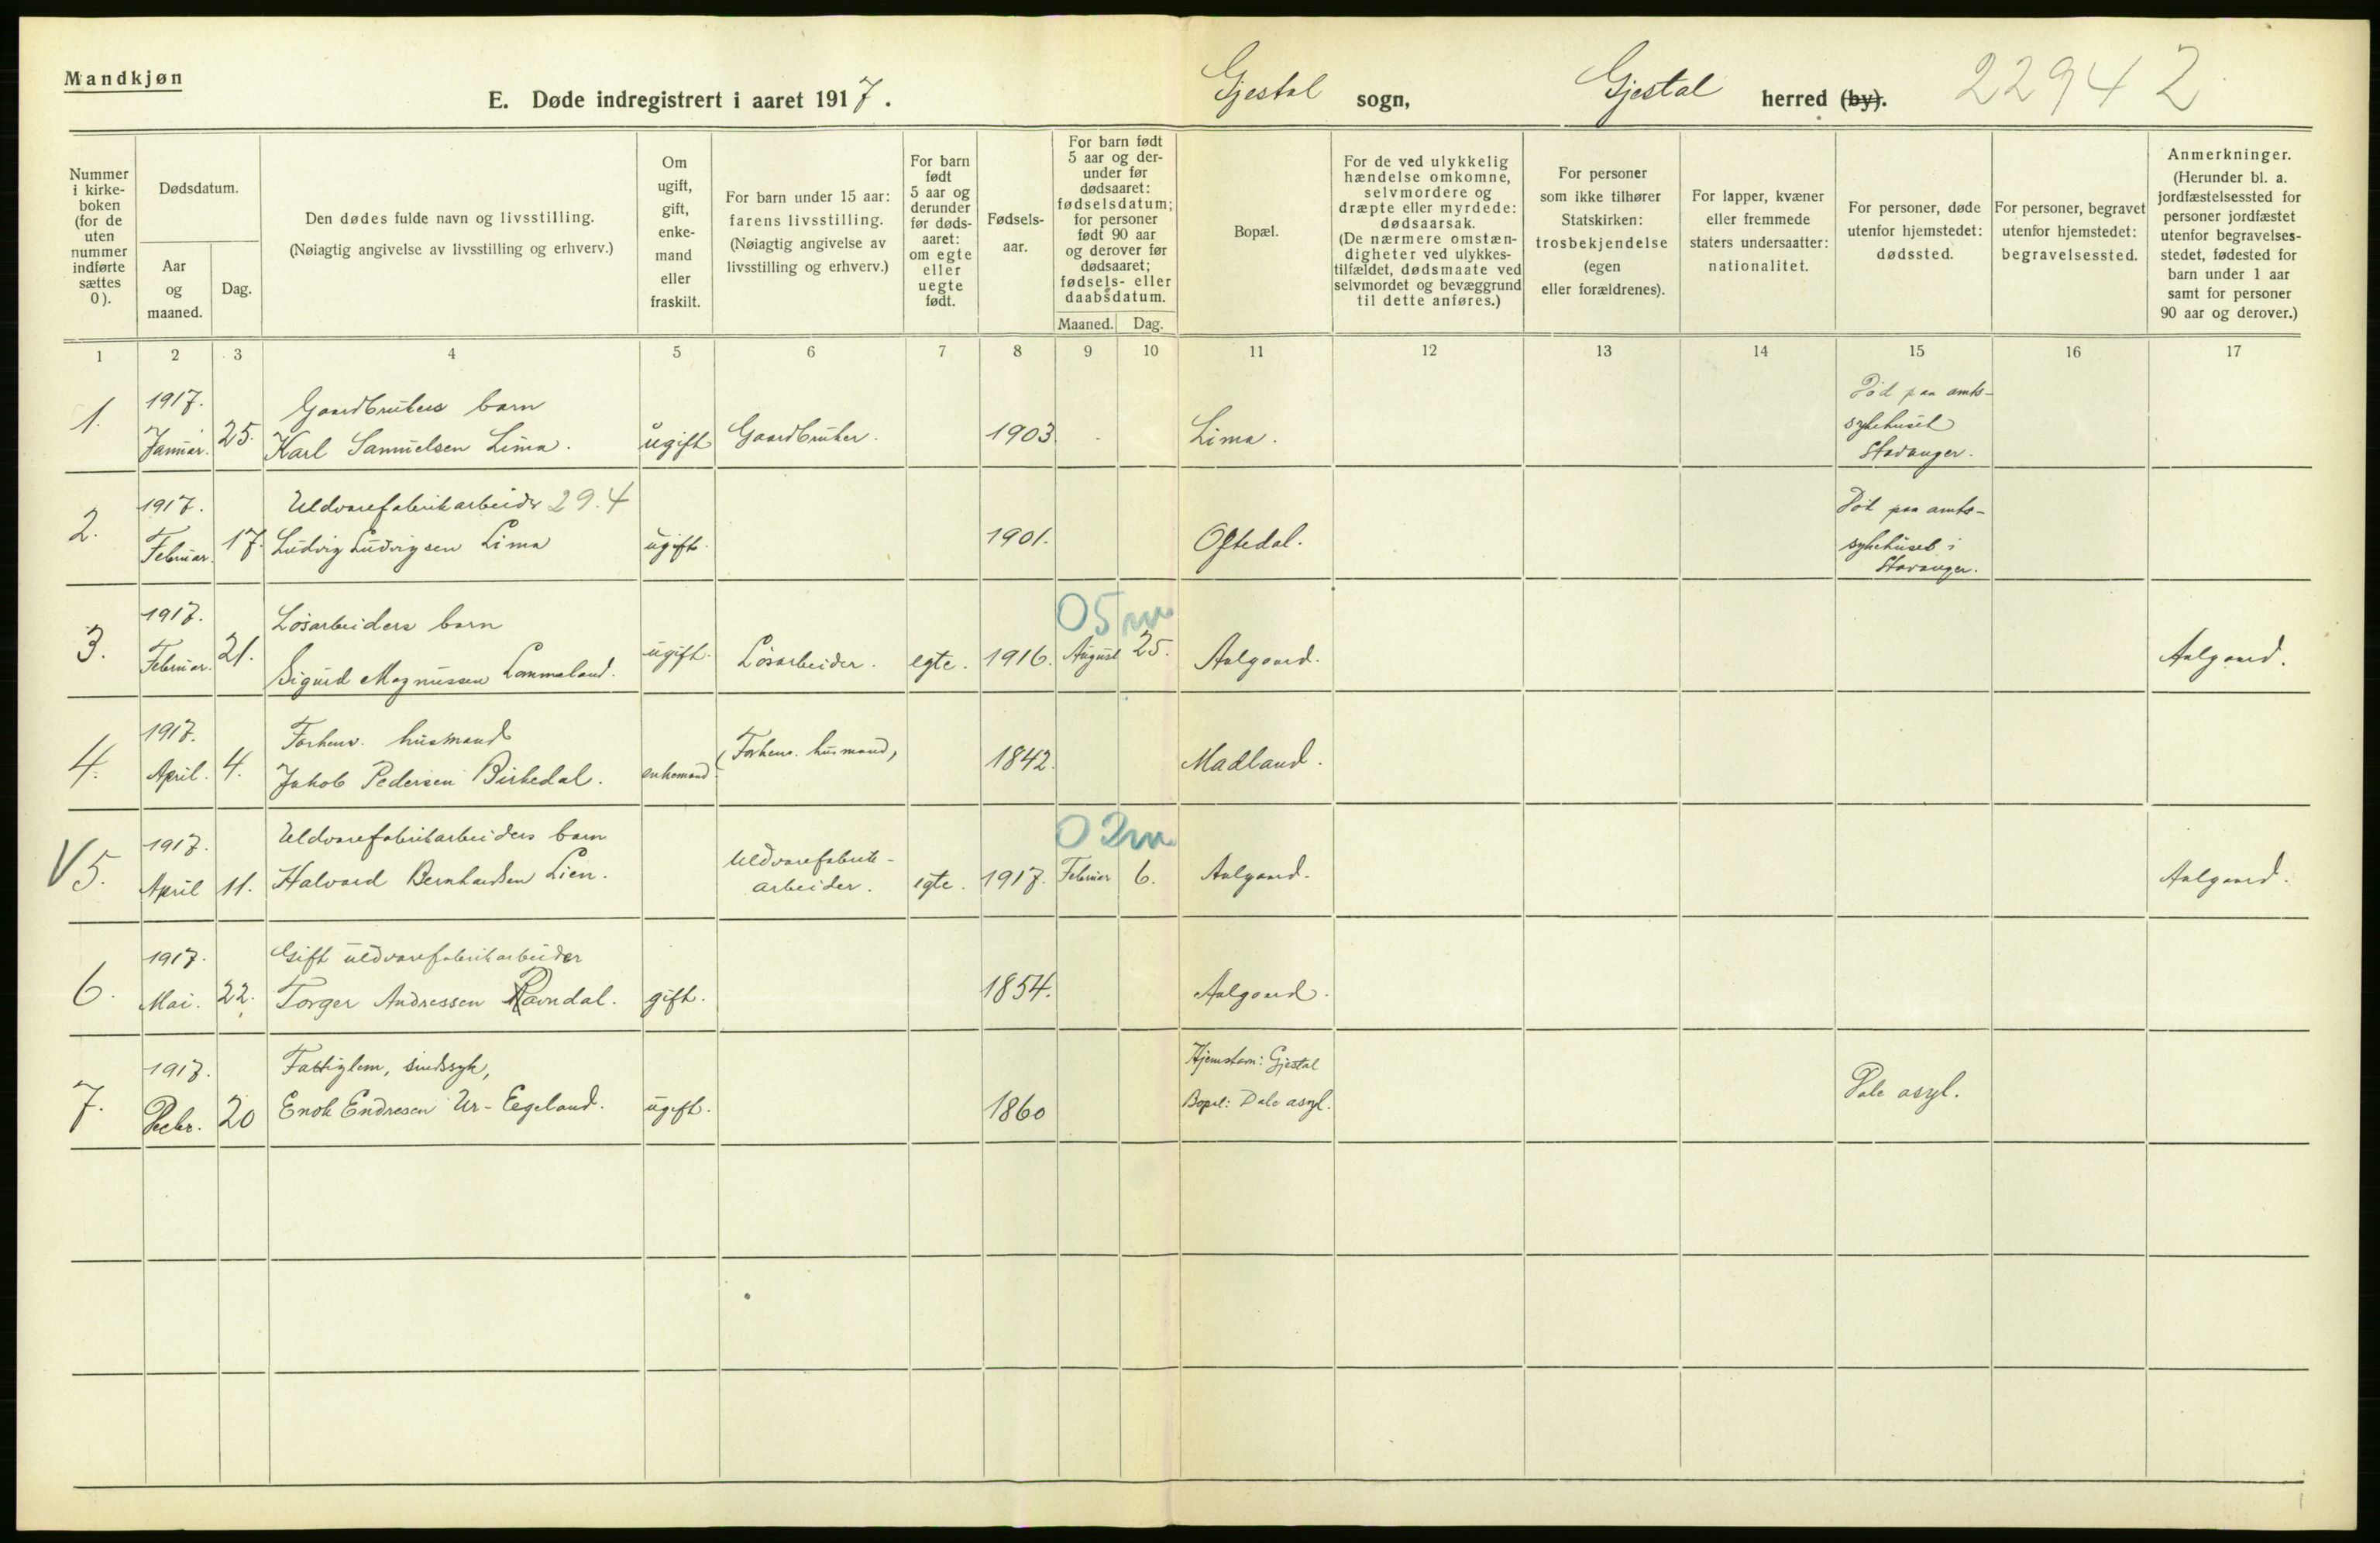 Mandkjøn
E. Døde indregistrert i aaret 1917.
Gjestal sogn,
Gjestal herred (by).
22942
Nummer i kirke-boken (for de uten nummer indførte sættes 0).
Dødsdatum.
Aar og maaned.
Dag.
Den dødes fulde navn og livsstilling.
(Nøiagtig angivelse av livsstilling og erhverv.)
Om ugift, gift, enke-mand eller fraskilt.
For barn under 15 aar: farens livsstilling.
(Nøiagtig angivelse av livsstilling og erhverv.)
For barn født 5 aar og derunder før døds-aaret: om egte eller uegte født.
Fødsels-aar.
For barn født 5 aar og der-under før dødsaaret: fødselsdatum; for personer født 90 aar og derover før dødsaaret; fødsels- eller daabsdatum.
Maaned. Dag.
Bopæl.
For de ved ulykkelig hændelse omkomne, selvmordere og dræpte eller myrdede: dødsaarsak.
(De nærmere omstæn-digheter ved ulykkes-tilfældet, dødsmaate ved selvmordet og bevæggrund til dette anføres.)
For personer som ikke tilhører Statskirken: trosbekjendelse (egen eller forældrenes).
For lapper, kvæner eller fremmede staters undersaatter: nationalitet.
For personer, døde utenfor hjemstedet: dødssted.
For personer, begravet utenfor hjemstedet: begravelsessted.
Anmerkninger.
(Herunder bl. a. jordfæstelsessted for personer jordfæstet utenfor begravelses-stedet, fødested for barn under 1 aar samt for personer 90 aar og derover.)
1 2 3 4 5 6 7 8 9 10 11 12 13 14 15 16 17
1. 1917. Januar. 25. Gaardbrukers barn
Karl Samuelsen Lima. ugift Gaardbruker. 1903. Lima. Död paa amts-
sykehuset
Stavanger.
2. 1917. Februar. 17. Uldvarefabrikarbeider 29.4
Ludvig Ludvigsen Lima ugift. 1901. Oftedal. Död paa amts-
sykehuset i
Stavanger.
05 m
3. 1917. Februar. 21. Lösarbeiders barn
Sigurd Magnussen Lammeland. ugift. Lösarbeider. egte. 1916. August 25. Aalgaard. Aalgaard.
4. 1917. April. 4. Forhenv. husmand
Jakob Pedersen Birkedal. enkemand. (Forhenv. husmand) 1842. Madland.
02 m
V 5. 1917. April 11. Uldvarefabrikarbeiders barn
Halvard Bernhardsen Lien. Uldvarefabrik-
arbeider. egte. 1917. Februar 6. Aalgaard. Aalgaard.
6. 1917. Mai. 22. Gift uldvarefabrikarbeider
Torger Andressen Ravndal. gift. 1854. Aalgaard.
7. 1917. Decbr. 20 Fattiglem, sindssyk,
Enok Endresen Ur-Eegeland. ugift. 1860 Hjemstavn: Gjestal
Bopæl: Dale asyl. Dale asyl.